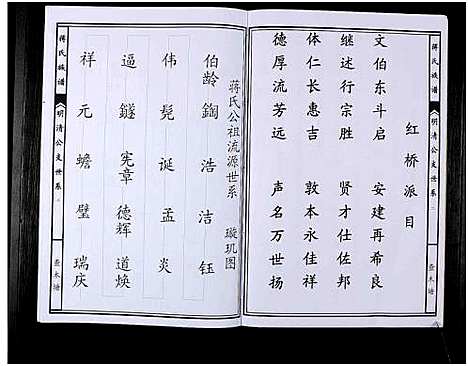 红桥派目
文伯东斗启 安建再希良
继述行宗胜 贤才仕佐邦
体仁长惠吉 敦本永佳祥
德厚流芳远 声名万世扬
蒋氏族谱
明清公支世系
蒋氏公祖流源世系 璇玑图
伯龄 鍧 浩 洁 钰
伟 髡 诞 孟 炎
逼 鐩 宪章 德辉 道焕
祥 元 蟾 璧 瑞庆
蒋氏族谱
明清公支世系